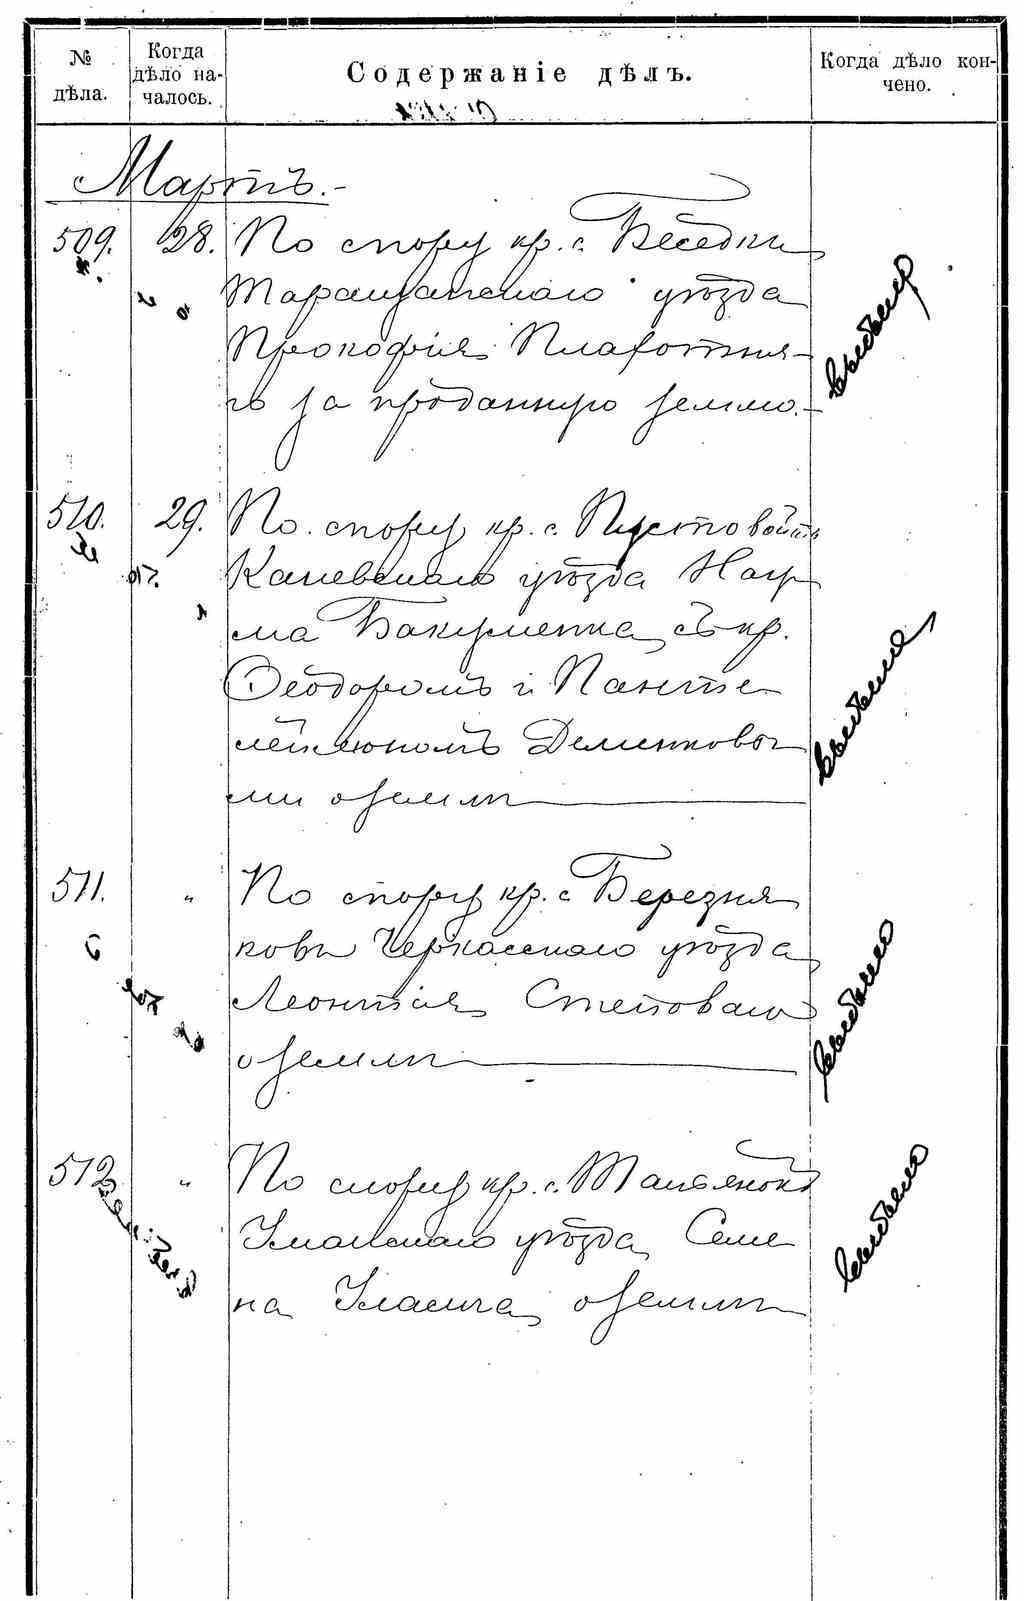 № дѣла.
Когда дѣло на-
чалось.
Содержаніе дѣлъ.
Когда дѣло кон-
чено.
Мартъ.-
509. 28. По спору кр. с. Беседки
Таращанскаго уѣзда
Прокофія
за проданную землю.-
510. 29. По спору кр. с. Пустовойтъ
Каневскаго уѣзда Нау
ма Бакуменка съ кр.
Ѳеодоромъ и Панте
леймономъ Деменковы
ми о землѣ
511. " По спору кр. с. Березня
ковъ Черкасскаго уѣзда
Леонтія Степоваго
о землѣ
512. " По спору кр. с. Тальянокъ
Уманскаго уѣзда Семе
на о землѣ